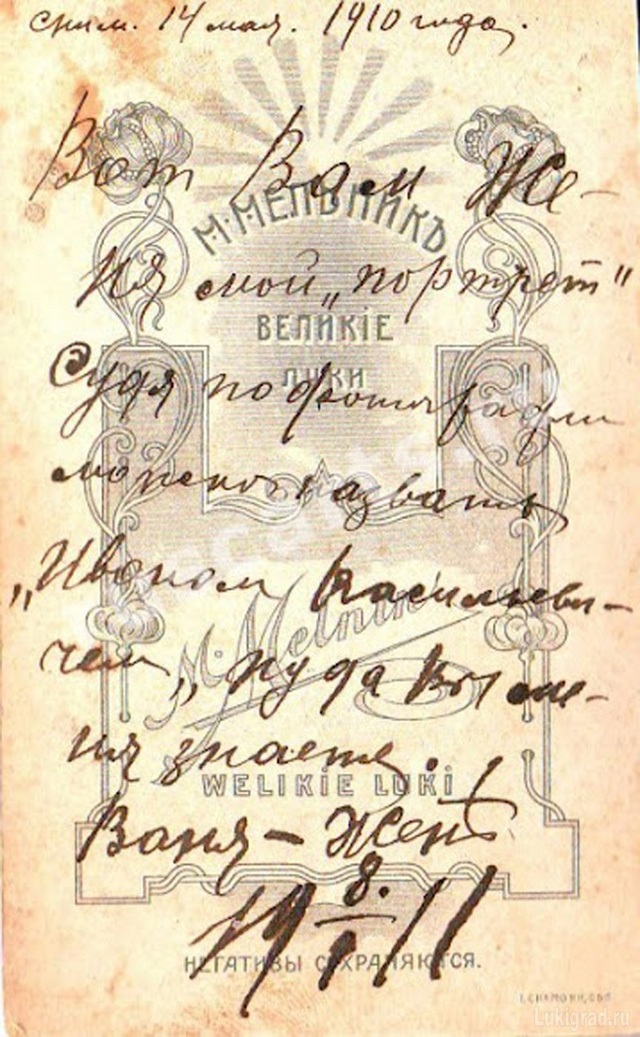 сним. 14 мая. 1910 года.
Вот Вам Же-
М. МЕЛЬНИКЪ
ня мой „портрет"
ВЕЛИКIЕ
Судя по фотографии
ЛУКИ
можно назвать
„Иваном Васильеви-
M. Melnik
чем„ ну да Вы ме-
ня знаете.
WELIKIE LUKI
Ваня – Женѣ
19 8/I 11
НЕГАТИВЫ СОХРАНЯЮТСЯ.
Lukigrad.ru